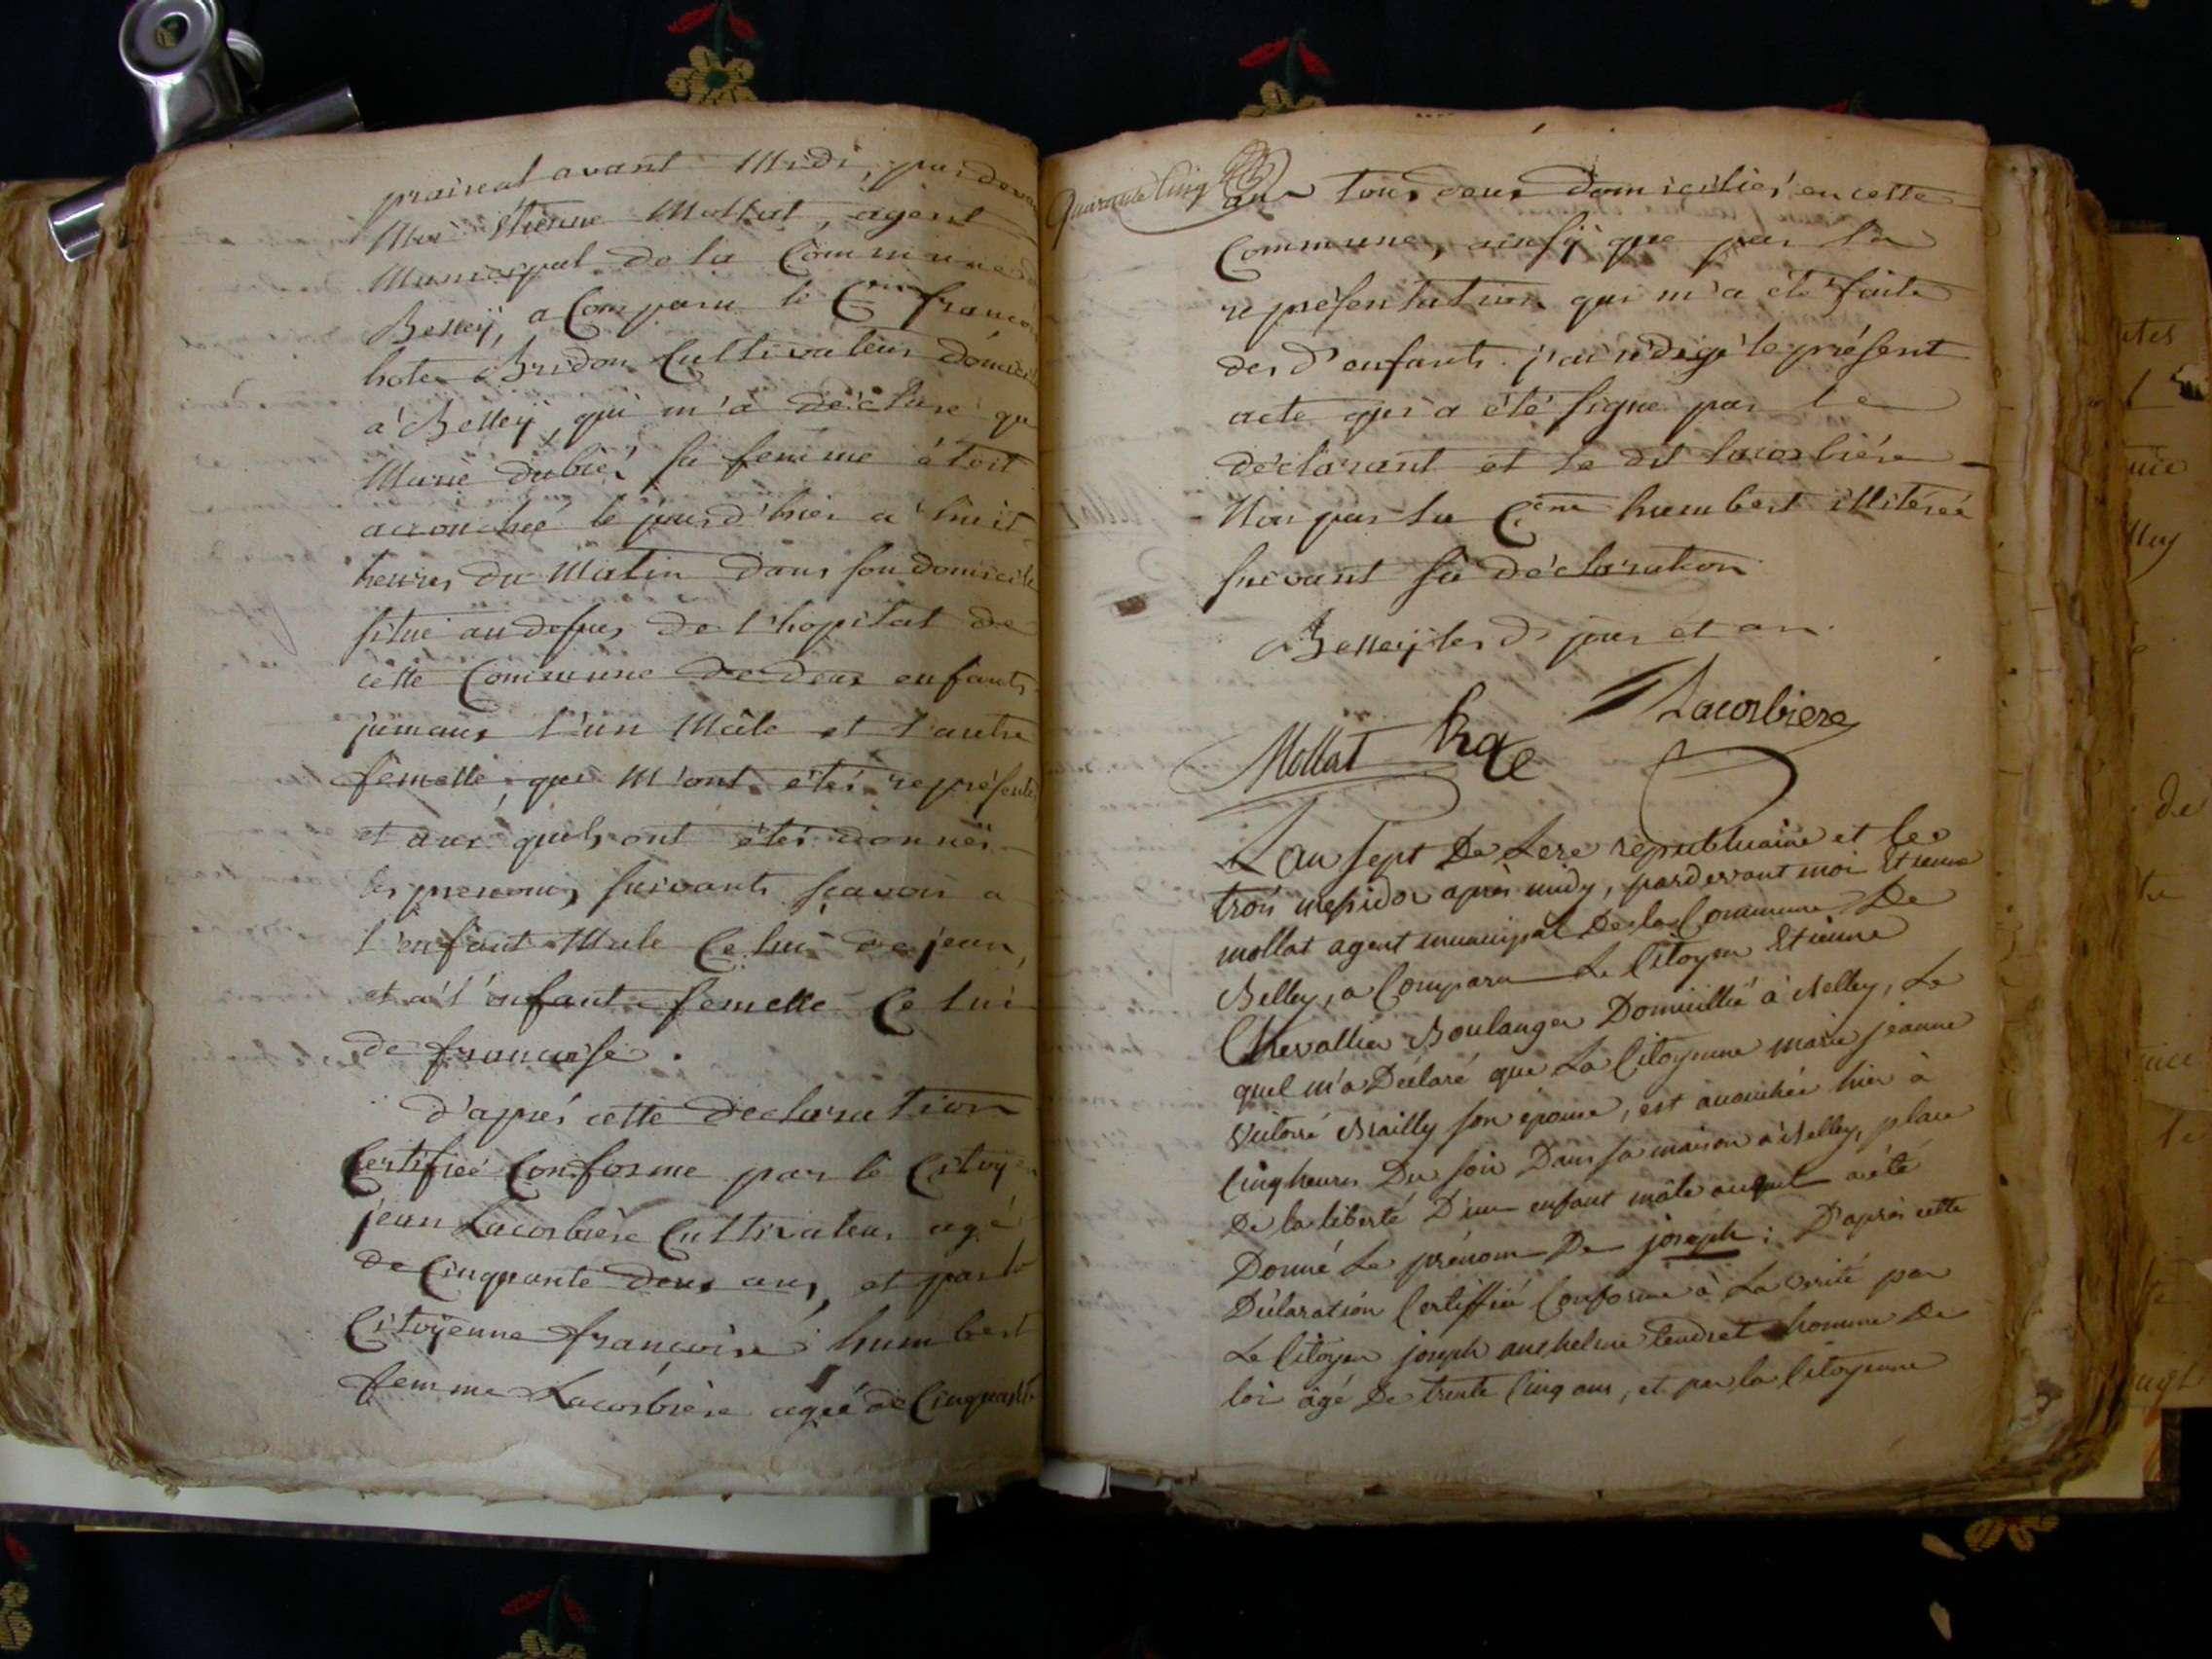 prairial avant Midi, par deva
Moi étienne Mollat, agent
Municipal de la Commune
Belleÿ, a Comparu le C.en franco
hote Bridon Cultivateur domicil
a Belleÿ, qui m'a déclaré qu
Marie dubié sa femme étoit
accouchée le jourd'hier a huit
heures du Matin dans son domicile
situé audessus de l'hopital de
cette Commune de deux enfants
jumaux l'un Mâle et l'autre
femelle, qui M'ont étés représentés
et aux quels ont étés donnés
les prenoms suivants sçavoir a
l'enfant Male Celui de jean,
et a l'enfant femelle Celui
de francoise.
d'aprés cette declaration
Certifieé Conforme par le Citoy
jean Lacorbiere Cultivateur agé
de Cinquante deux ans, et par la
Citoÿenne françoise humbert
femme Lacorbiere ageé de Cinquante
Quarante Cinq
ans tous deux domiciliés en cette
Commune, ainsÿ que par la
représentation qui m'a été faite
des d. enfants. j'ai rédigé le présent
acte qui a été signé par le
déclarant et le dit lacorbiére
Non par la C.enne humbert illitéreé
suivant sa déclaration
Belleÿ les d. jour et an.
Lacorbiere
Mollat hote
L'an sept De L'ere republicaine et le
trois messidor après midy, pardevant moi Etienne
mollat agent municipal De la Commune De
Belley, a Comparu Le Citoyen Etienne
Chevallier Boulanger Domicillié à Belley, Le
quel m'a Déclaré que La Citoyenne marie jeanne
Victoire Brailly son épouse, est accouchée hier à
Cinq heures Du soir Dans sa maison à Belley, place
De la liberté D'un enfant mâle auquel a été
Donné Le prénom De joseph; D'après cette
Déclaration Certiffiée Conforme à La vérité par
Le Citoyen joseph anthelme tendret homme De
loi âgé De trente Cinq ans, et par la Citoyenne